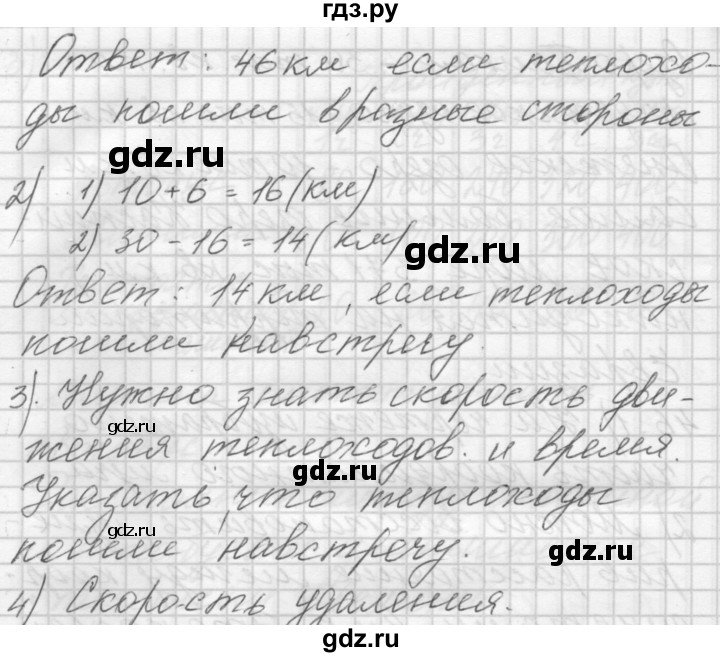 гдз.ру
Ответ: 46км если теплохо-
ды пошли в разные стороны
gdz.ru
2) 1) 10+6 = 16 (км)
2) 30-16 = 14 (км)
gdz.ru
Ответ: 14км, если теплоходы
пошли навстречу.
3). Нужно знать скорость дви-
gdz.ru
жения теплоходов. и время.
gdz.ru
Указать, что теплоходы
gdz.ru
пошли навстречу.
gdz.ru
4) Скорость удаления.
gdz.ru